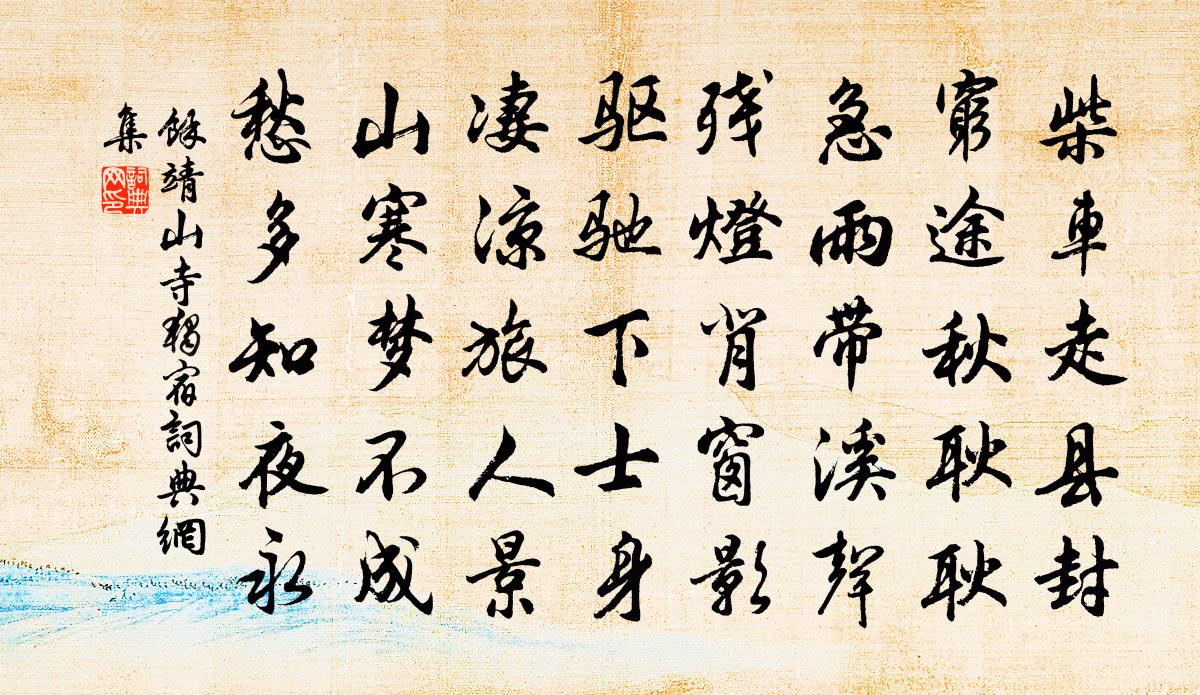 柴車走县封
窮途秋耿耿
急雨带溪聲
残燈肖窗影
驱驰下士身
凄凉旅人景
山寒梦不成
愁多知夜永
餘靖山寺獨宿詞典網
集
詞典
网印